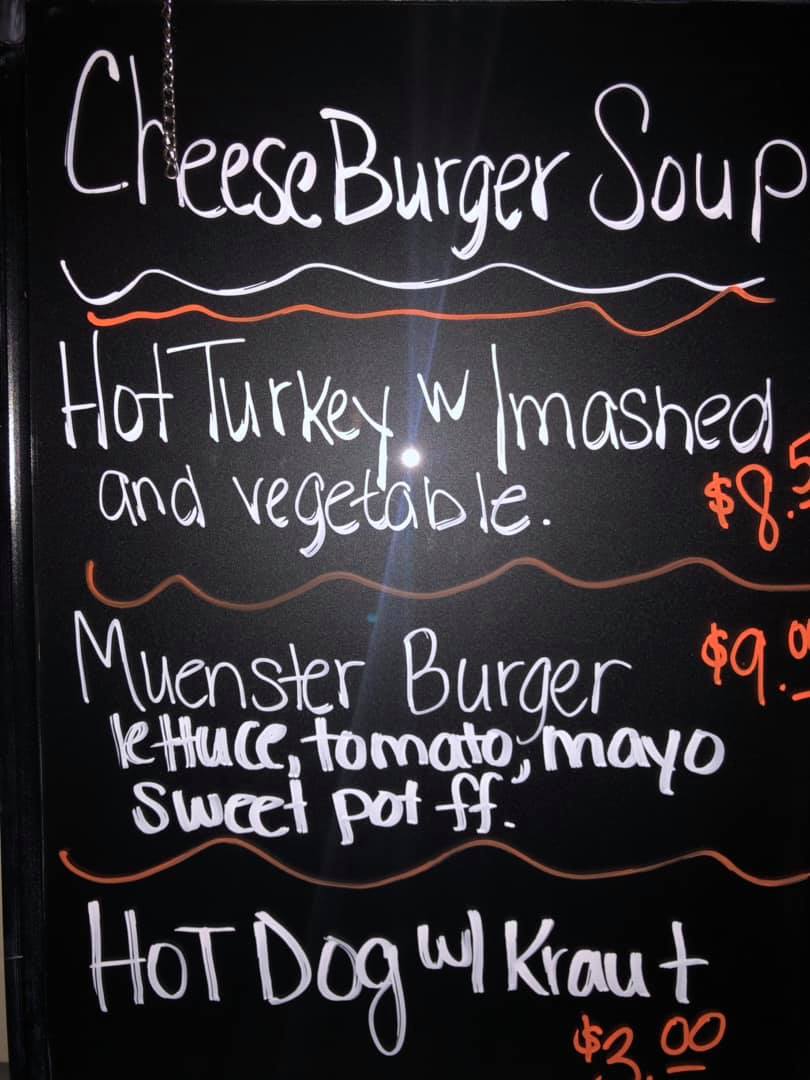 CheeseBurger Soup
Hot Turkey w/mashed
and vegetable.
$8.5
Muenster Burger
$9.00
lettuce, tomato, mayo
sweet pot ff.
HOT DOg w/ Kraut
$3.00